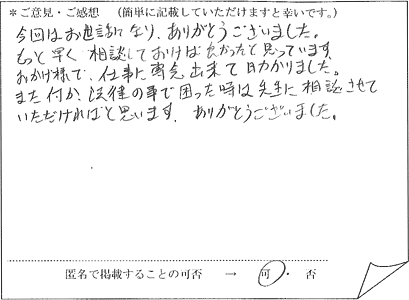 ＊ご意見・ご感想　（簡単に記載していただけますと幸いです。）
今回はお世話になり、ありがとうございました。
もっと早く相談しておけば良かったと思っています。
おかげ様で、仕事に専念出来て助かりました。
また何か、法律の事で困った時は先生に相談させて
いただければと思います。ありがとうございました。
匿名で掲載することの可否　→　可・否